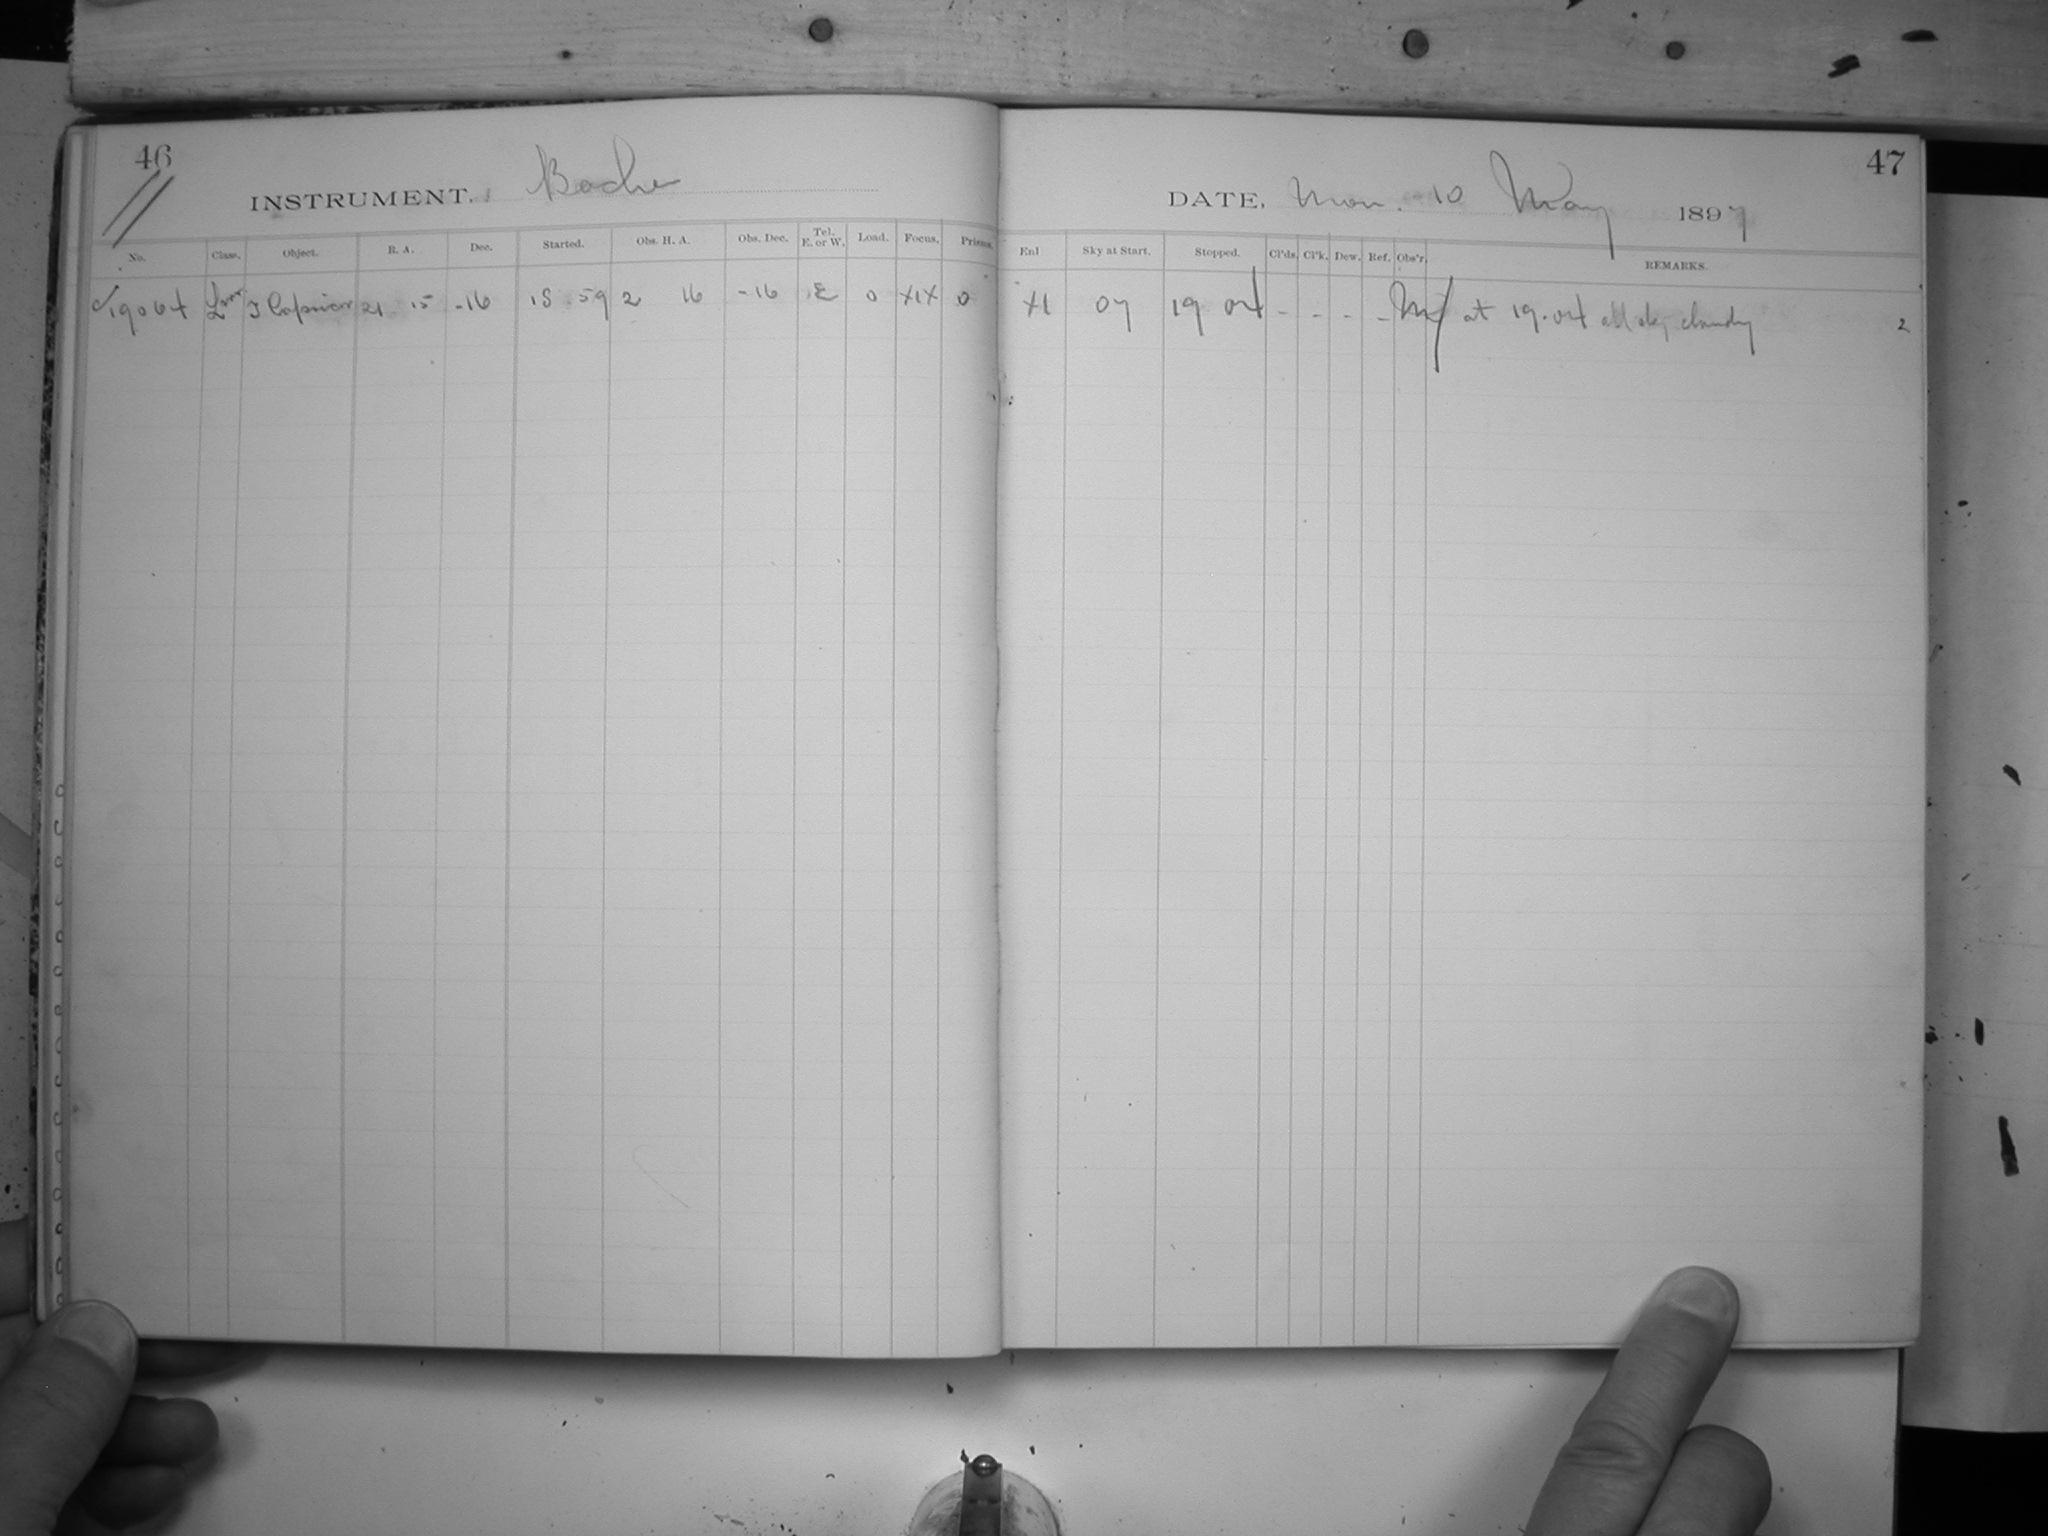 46
INSTRUMENT. Bache
No. Class. Object. R. A. Dec. Started. Obs. H. A. Obs. Dec. Tel. E. or W. Load. Focus. Prisms.
19064 T Capricor 21 15 -16 18 59 2 16 -16 E 0 XIX 0
47
DATE, Mon. 10 May 1897
Enl Sky at Start. Stopped. Cl'ds. Cl'k. Dew. Ref. Obs'r. REMARKS.
XI 07 19 04 - - - - at 19.04 all sky cloudy 2